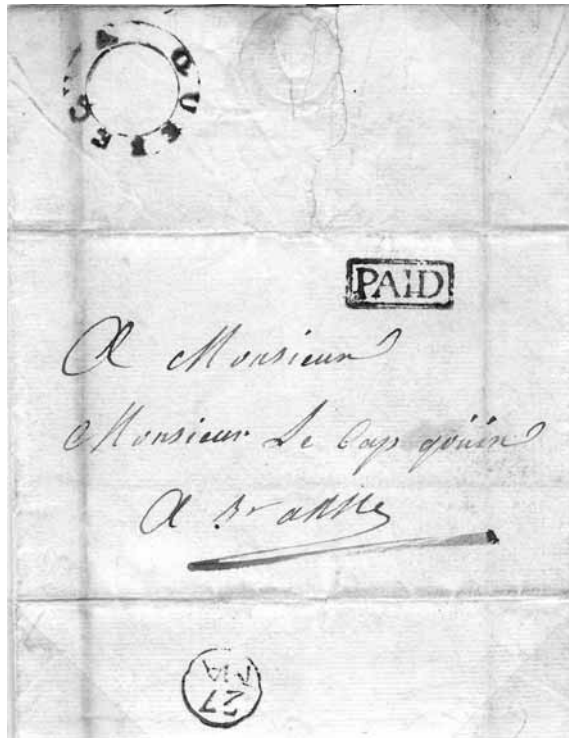 QUEBEC
PAID
A Monsieur
Monsieur Le Cap gouin
A St anne
27
MA